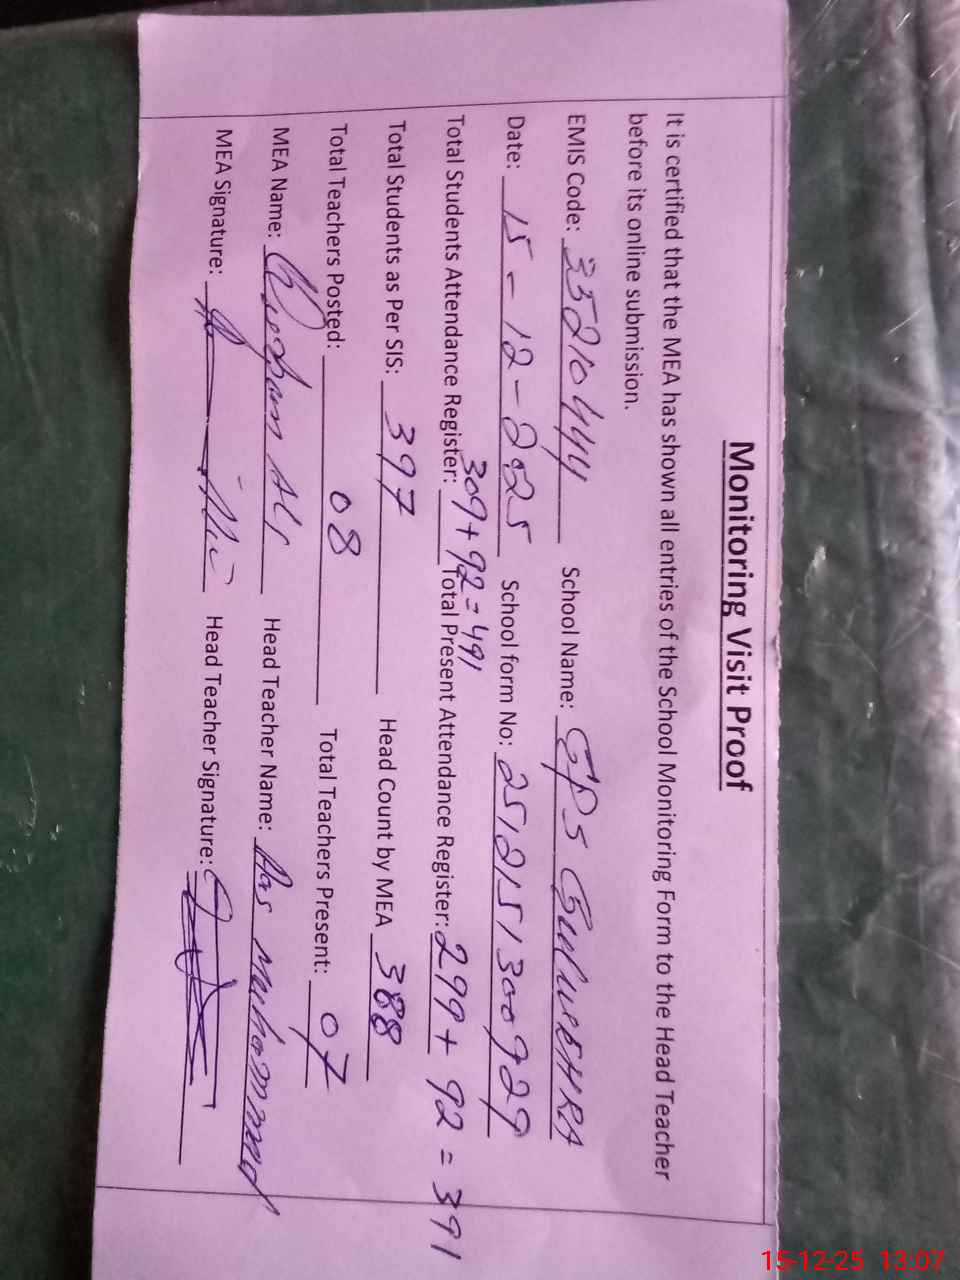 Monitoring Visit Proof
It is certified that the MEA has shown all entries of the School Monitoring Form to the Head Teacher
before its online submission.
EMIS Code: 35210444 School Name: GPS
Date: 15-12-2025 School form No: 2512151300929
Total Students Attendance Register: 309+92=491 Total Present Attendance Register: 299+92=391
Total Students as Per SIS: 397 Head Count by MEA 388
Total Teachers Posted: 08 Total Teachers Present: 07
MEA Name: Ali Head Teacher Name: Muhammad
MEA Signature: Head Teacher Signature:
15-12-25 13:07